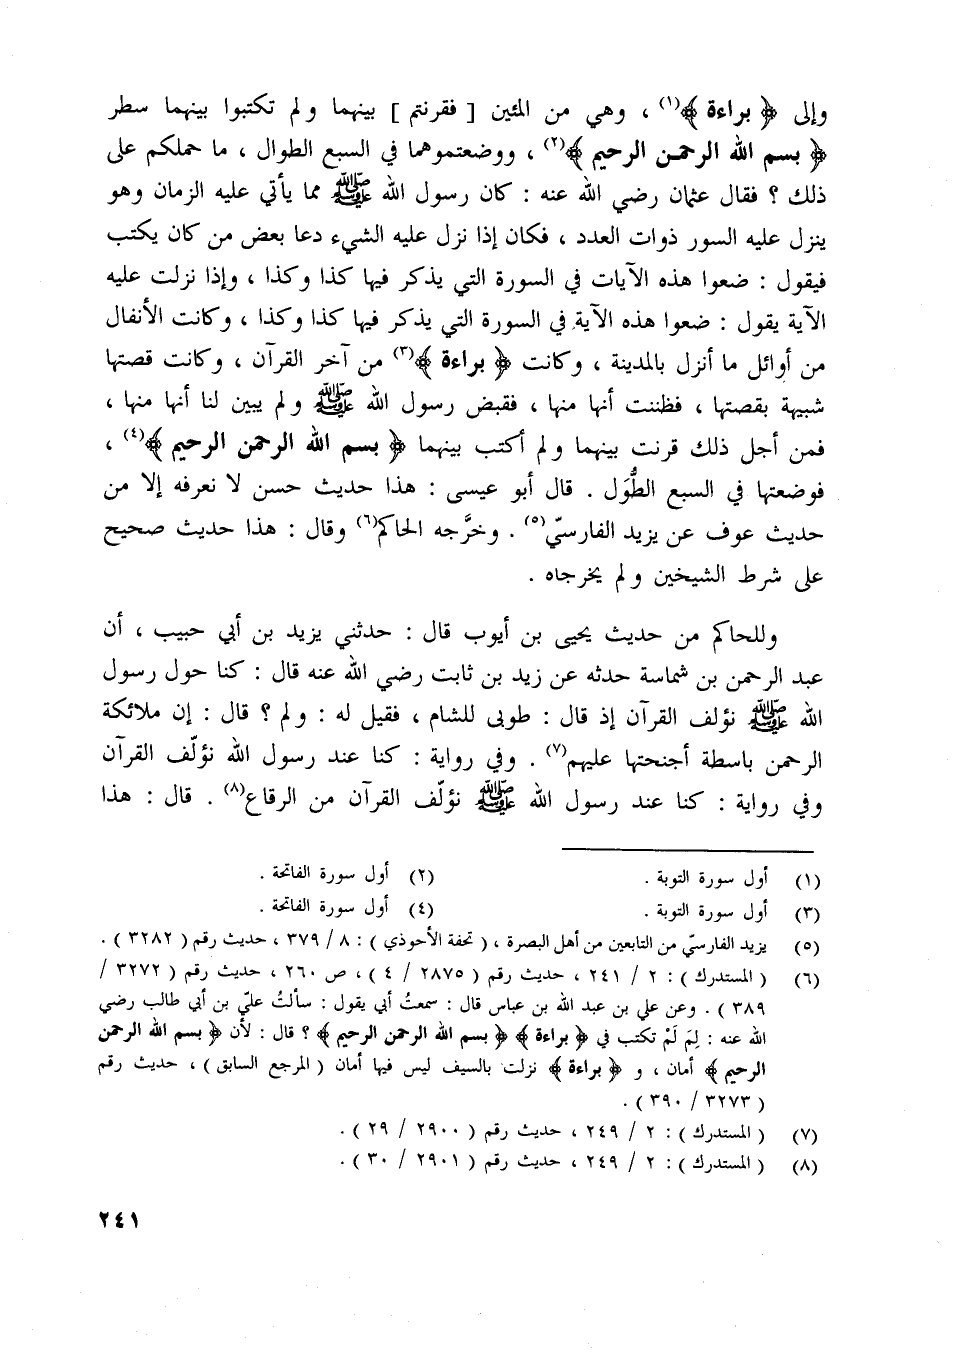 وإلى ﴿ براءة ﴾(١) ، وهي من المئين [ فقرنتم ] بينهما ولم تكتبوا بينهما سطر
﴿ بسم الله الرحمـن الرحيم ﴾(٢) ، ووضعتموهما في السبع الطوال ، ما حملكم على
ذلك ؟ فقال عثمان رضي الله عنه : كان رسول الله ﷺ مما يأتي عليه الزمان وهو
ينزل عليه السور ذوات العدد ، فكان إذا نزل عليه الشيء دعا بعض من كان يكتب
فيقول : ضعوا هذه الآيات في السورة التي يذكر فيها كذا وكذا ، وإذا نزلت عليه
الآية يقول : ضعوا هذه الآية في السورة التي يذكر فيها كذا وكذا ، وكانت الأنفال
من أوائل ما أنزل بالمدينة ، وكانت ﴿ براءة ﴾(٣) من آخر القرآن ، وكانت قصتها
شبيهة بقصتها ، فظننت أنها منها ، فقبض رسول الله ﷺ ولم يبين لنا أنها منها ،
فمن أجل ذلك قرنت بينهما ولم أكتب بينهما ﴿ بسم الله الرحمن الرحيم ﴾(٤) ،
فوضعتها في السبع الطُّوَل . قال أبو عيسى : هذا حديث حسن لا نعرفه إلا من
حديث عوف عن يزيد الفارسيّ(٥) . وخرَّجه الحاكم(٦) وقال : هذا حديث صحيح
على شرط الشيخين ولم يخرجاه .
وللحاكم من حديث يحيى بن أيوب قال : حدثني يزيد بن أبي حبيب ، أن
عبد الرحمن بن شماسة حدثه عن زيد بن ثابت رضي الله عنه قال : كنا حول رسول
الله ﷺ نؤلف القرآن إذ قال : طوبى للشام ، فقيل له : ولم ؟ قال : إن ملائكة
الرحمن باسطة أجنحتها عليهم(٧) . وفي رواية : كنا عند رسول الله نؤلّف القرآن
وفي رواية : كنا عند رسول الله ﷺ نؤلّف القرآن من الرقاع(٨) . قال : هذا
(١) أول سورة التوبة . (٢) أول سورة الفاتحة .
(٣) أول سورة التوبة . (٤) أول سورة الفاتحة .
(٥) يزيد الفارسيّ من التابعين من أهل البصرة ، ( تحفة الأحوذي ) : ٨ / ٣٧٩ ، حديث رقم ( ٣٢٨٢ ) .
(٦) ( المستدرك ) : ٢ / ٢٤١ ، حديث رقم ( ٢٨٧٥ / ٤ ) ، ص ٢٦٠ ، حديث رقم ( ٣٢٧٢ /
٣٨٩ ) . وعن علي بن عبد الله بن عباس قال : سمعتُ أبي يقول : سألتُ عليّ بن أبي طالب رضي
الله عنه : لِمَ لَمْ تكتب في ﴿ براءة ﴾ ﴿ بسم الله الرحمن الرحيم ﴾ ؟ قال : لأن ﴿ بسم الله الرحمن
الرحيم ﴾ أمان ، و ﴿ براءة ﴾ نزلت بالسيف ليس فيها أمان ( المرجع السابق ) ، حديث رقم
( ٣٢٧٣ / ٣٩٠ ) .
(٧) ( المستدرك ) : ٢ / ٢٤٩ ، حديث رقم ( ٢٩٠٠ / ٢٩ ) .
(٨) ( المستدرك ) : ٢ / ٢٤٩ ، حديث رقم ( ٢٩٠١ / ٣٠ ) .
٢٤١